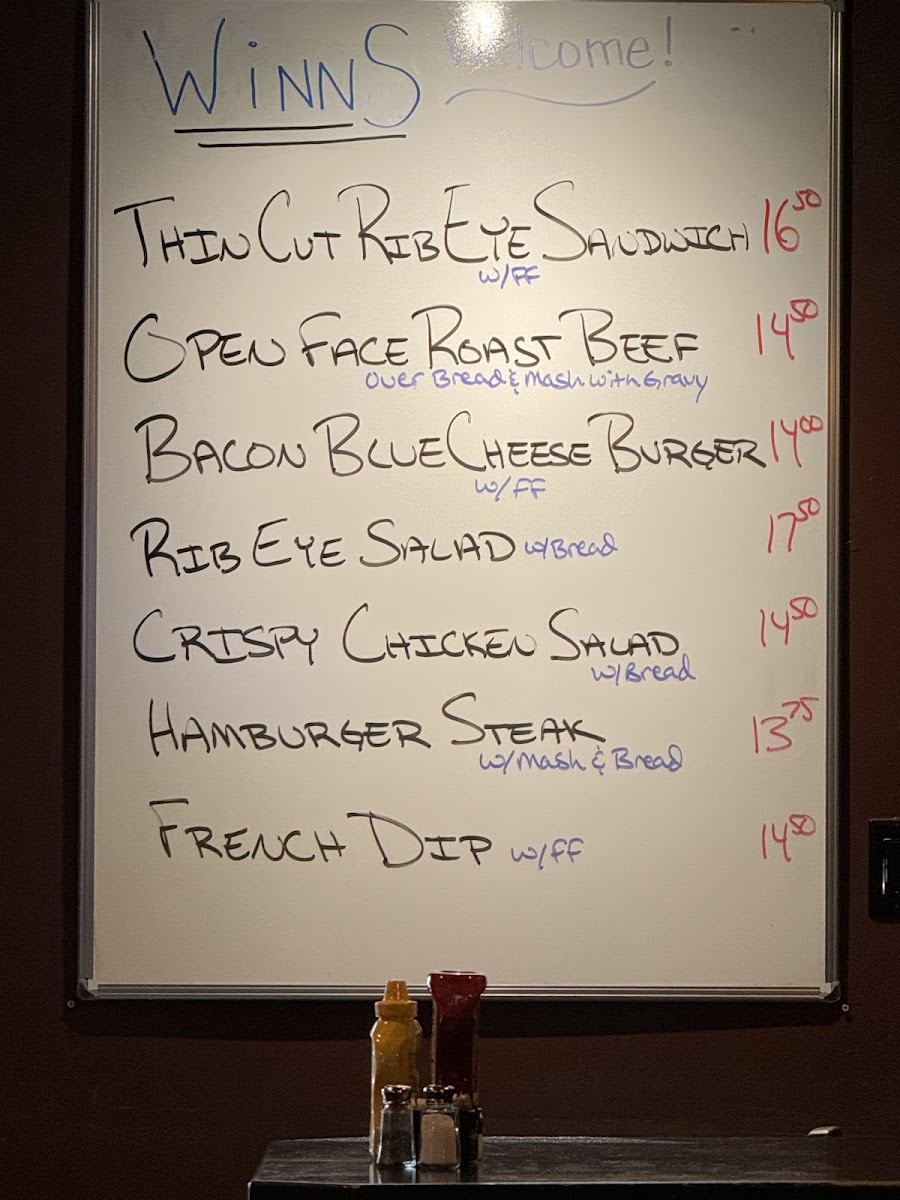 WiNNS Welcome!
THIN CUT RIB EYE SANDWICH 16 50
w/FF
OPEN FACE ROAST BEEF 14 50
over Bread & Mash with Gravy
BACON BLUE CHEESE BURGER 14 00
w/FF
RIB EYE SALAD w/Bread 17 50
CRISPY CHICKEN SALAD 14 50
w/Bread
HAMBURGER STEAK 13 75
w/Mash & Bread
FRENCH DIP w/FF 14 50